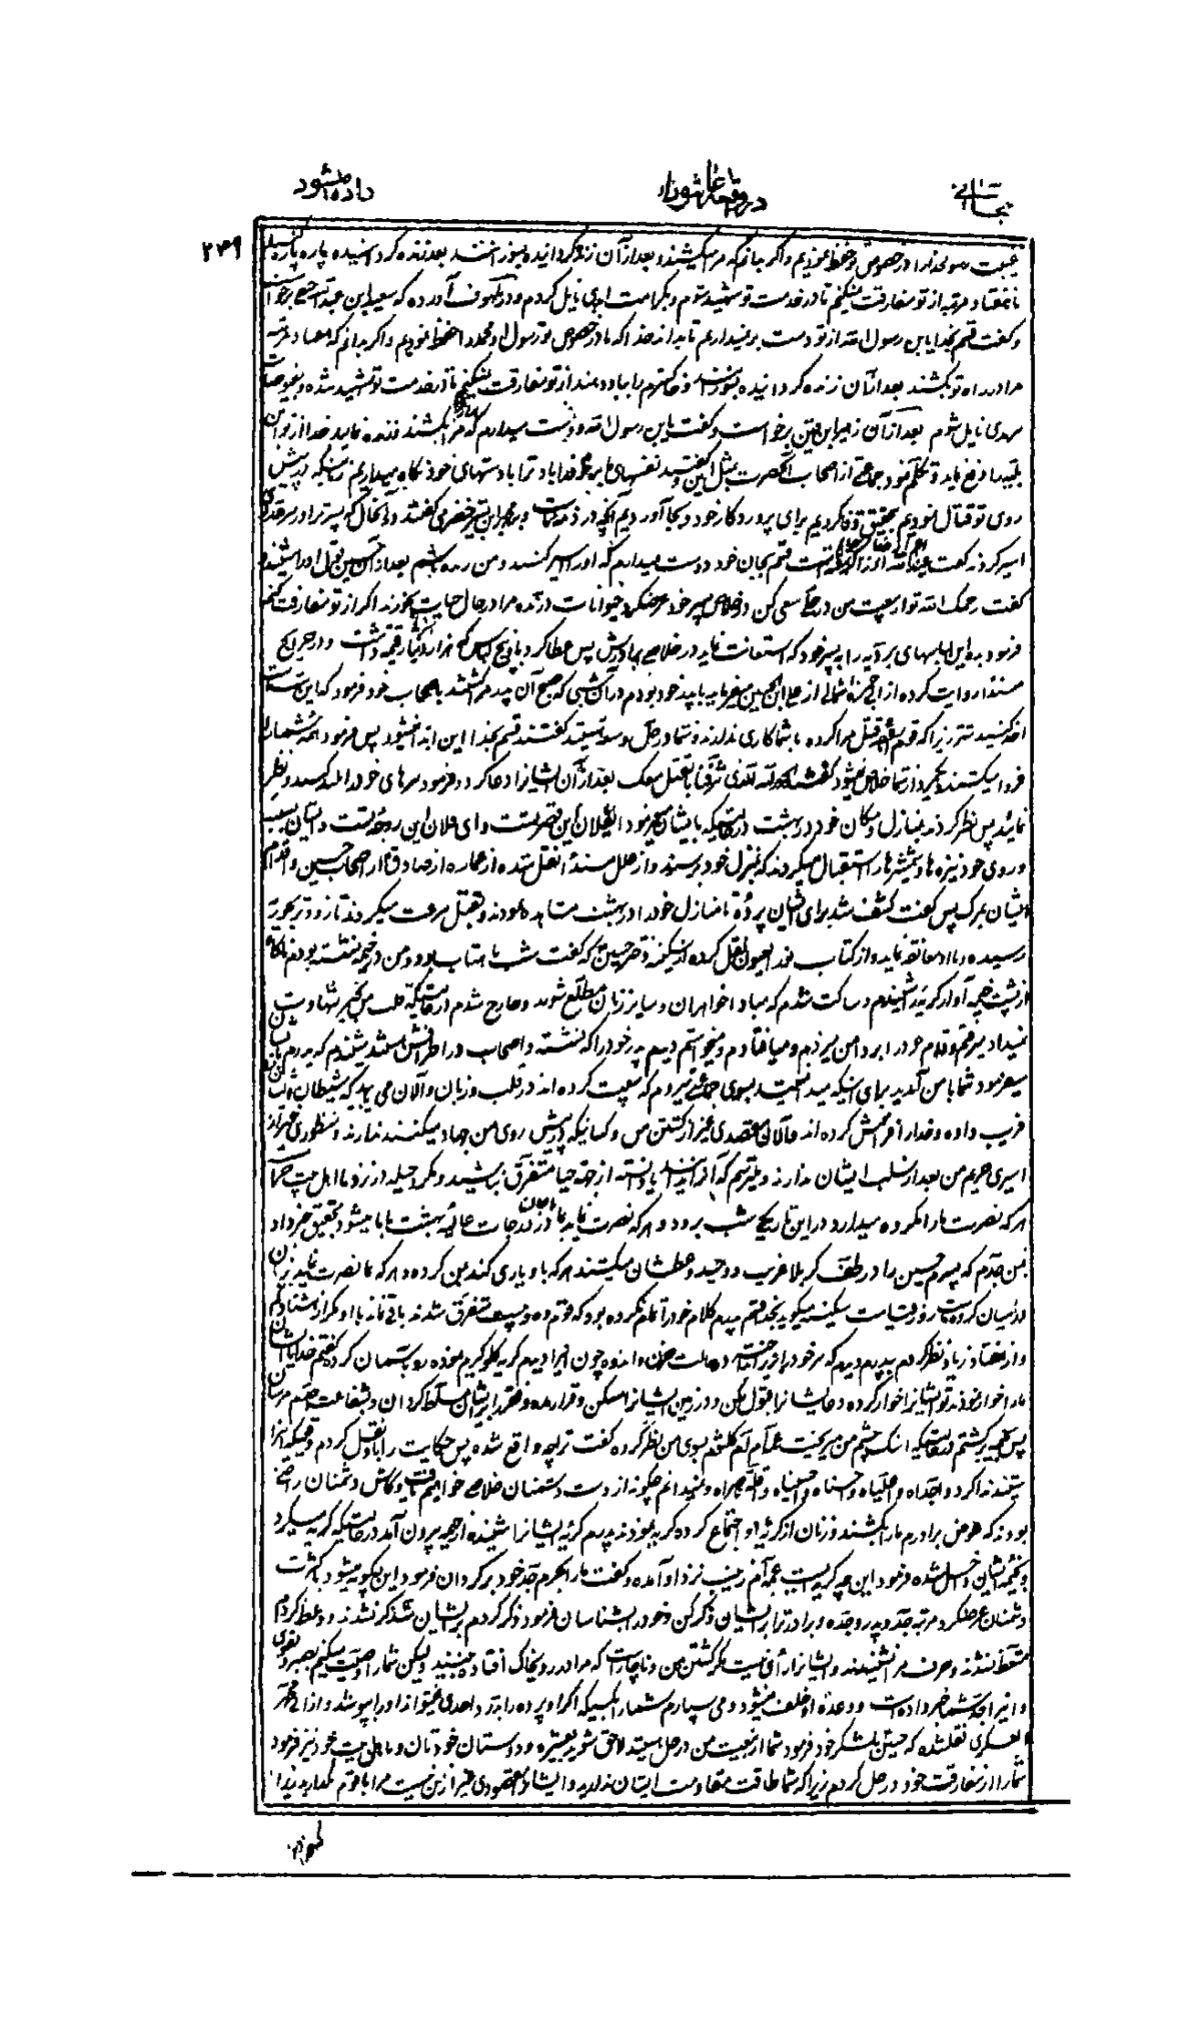 در وقعه عاشورا
داده میشود
۲۳۹
غیبت رسولخدا را در خصوص تو حفظ نمودیم و اگر بدانم که مرا میکشند و بعد از آن زنده گردانیده بسوزانند بعد زنده کرد پاره پاره
تا هفتاد مرتبه از تو مفارقت نمیکنم تا در خدمت تو شهید شوم و بکرامت ابدی نایل کردم و در لهوف آورده که سعید ابن عبد الله برخواست
و گفت قسم بخدا یابن رسول الله از تو دست بر نمیداریم تا بداند خدا که ما در خصوص تو رسول او محمد را حفظ نمودیم و اگر بدانم که هفتاد مرتبه
مرا در راه تو بکشند بعد از آن زنده گردانیده بسوزانند و خاکسترم را بباد دهند از تو مفارقت نمیکنم تا در خدمت تو شهید شده
سرمدی نایل شوم بعد از آن زهیر ابن قین برخواست و گفت یابن رسول الله دوست میدارم که مرا بکشند زنده نماید خدا از تو
بلیه را رفع نماید و تکلم نمود جماعتی از اصحاب آنحضرت بمثل این و گفتند نفسهای ما بر تو فدا باد ترا با دستهای خود نگاه میداریم زمانیکه در پیش
روی تو قتال نمودیم بتحقیق وفا کردیم برای پروردگار خود و بجا آوردیم آنچه در ذمه ماست و بمحمد ابن بشیر حضرمی گفتند در آنحال که پسر ترا در سرحد ری
اسیر کردند گفت قسم بجان خود دوست میدارم که او را اسیر کنند و من زنده باشم بعد از آن حسین قول او را شنیده
گفت رحمک الله تو از بیعت من در حلی سعی کن در خلاصی پسر خود عرضکرد حیوانات درنده مرا در حال حیات بخورند اگر از تو مفارقت کنم
فرمود بده این لباسهای برد یمانی را به پسر خود که استعانت نماید در خلاصی برادرش پس عطا کرد باو پنج لباس که هزار دینار قیمت داشت و در
مسندا روایت کرده از ابی حمزه ثمالی از علی ابن الحسین میفرماید با پدر خود بودم در آن شبی که صبح آن پدرم را کشتند باصحاب خود فرمود که این شب است
اخذ کنید شتر زیرا که قوم قصد قتل مرا کرده با شما کاری ندارند و شما در حل و سعه هستید گفتند قسم بخدا این ابدا نمیشود پس فرمود همه شما را
فردا میکشند و یکنفر از شما خلاص نمیشود گفتند الحمد لله الذی شرفنا بالقتل معک بعد از آن ایشانرا دعا کرد و فرمود سرهای خود را بلند کنید و نظر
نمائید پس نظر کردند بمنازل و مکان خود در بهشت در حالتیکه بایشان میفرمود ای فلان این قصر تست و ای فلان این روضه تست
و روی خود نیزه ها و شمشیرها را استقبال میکردند که بمنزل خود برسند و از علل مسندا نقل شده از عماره از صادق از اصحاب حسین و اقدام
ایشان بمرگ پس گفت کشف شد برای ایشان پرده تا منازل خود را در بهشت مشاهده نمودند و بقتل سرعت میکردند تا زودتر بحوریه
رسیده و با او معانقه نماید و از کتاب نور العیون نقل کرده از سکینه دختر حسین که گفت شب ماهتاب بود و من در خیمه نشسته بودم ناگاه
از پشت خیمه آواز گریه شنیدم و ساکت شدم که مبادا خواهران و سایر زنان مطلع شوند و خارج شدم در حالتیکه قلب من خبر شهادت
میداد میرفتم و قدم خود را بر دامن میزدم و میافتادم و میخواستم دیدم پدر خود را که نشسته و اصحاب در اطرافش هستند شنیدم که پدرم بایشان
میفرمود شما با من آمدید برای اینکه میدانستید بسوی جماعتی میروم که بیعت کرده اند در قلب و زبان و الآن می بینید که شیطان ایشانرا
فریب داده و خدا را فراموش کرده اند و الآن مقصدی غیر از کشتن من و کسانیکه در پیش روی من جهاد میکنند ندارند و منظوری غیر از
اسیری حریم من بعد از سلب ایشان ندارند و میترسم که اگر ندانید یا دانسته از جهة حیا متفرق نباشید و مکر و حیله در نزد ما اهل بیت حرام
هر که نصرت ما را مکروه میدارد در این تاریکی شب برود و هر که نصرت نماید با ما در درجات عالیه بهشت با ما میشود بتحقیق خبر داد
بمن جدم که پسرم حسین را در طف کربلا غریب و وحید و عطشان میکشند هر که باو یاری کند بمن کرده و هر که بما نصرت نماید بزبان
در میان گروه ماست روز قیامت سکینه میگوید بخدا قسم پدرم کلام خود را تمام نکرده بود که قوم ده و بیست متفرق شدند باقی نماند با او مگر از هشتاد کم
و از هفتاد زیاد نظر کردم به پدرم دیدم که سر خود را بزیر انداخته و حالت حزن و اندوه چون اینرا دیدم گریه کلوگیرم نموده رو بآسمان کرده گفتم خدایا ایشان
ما را خوار نمودند تو ایشانرا خوار کرده دعا ایشانرا قبول نکن و در زمین ایشانرا مسکن و قرار مده و فقر را بر ایشان مسلط گردان و شفاعت جدم مرسان
پس بخیمه برگشتم در حالتیکه اشک چشم من میریخت عمه ام ام کلثوم بسوی من نظر کرده گفت ترا چه واقع شده پس حکایت را باو نقل کردم وقتیکه اینرا
شنید ندا کرد واجداه واعلیاه واحسناه واحسیناه واقلة ناصراه و نمیدانم چگونه از دست دشمنان خلاصی خواهیم یافت و کاش دشمنان راضی
بودند که عوض برادرم ما را بکشند و زنان از گریه او اجتماع کرده گریه نمودند پدرم گریه ایشانرا شنیده از خیمه بیرون آمد در حالتیکه گریه میکرد
و بخیمه ایشان داخل شده فرمود این چه گریه ایست عمه ام زینب نزد او آمده و گفت ما را بحرم جد خود برگردان فرمود این چگونه میشود بکثرت
دشمنان عرضکرد مرتبه جد و پدر و جده و برادر ترا بر ایشان ذکر کن و خود را بشناسان فرمود ذکر کردم بر ایشان متذکر نشدند و وعظ کردم
متعظ نشدند و حرف مرا نشنیدند و ایشانرا رأی نیست مگر کشتن من و ناچار است که مرا در روی خاک افتاده ببینید ولیکن شما را وصیت میکنم بصبر و تقوی
و اینرا جد شما خبر داده است و وعده او خلف نمیشود و می سپارم شما را بکسیکه اگر او پرده را بردارد احدی نمیتواند او را بپوشد و از ابی محمد
العسکری نقلشده که حسین بلشکر خود فرمود شما از بیعت من در حل هستید لاحق شوید بعشیره و دوستان خودتان و باهل بیت خود نیز فرمود
شما را از مفارقت خود در حل کردم زیرا که شما طاقت مقاومت ایشان ندارید و ایشان مقصودی غیر از من نیست مرا با قوم بگذارید